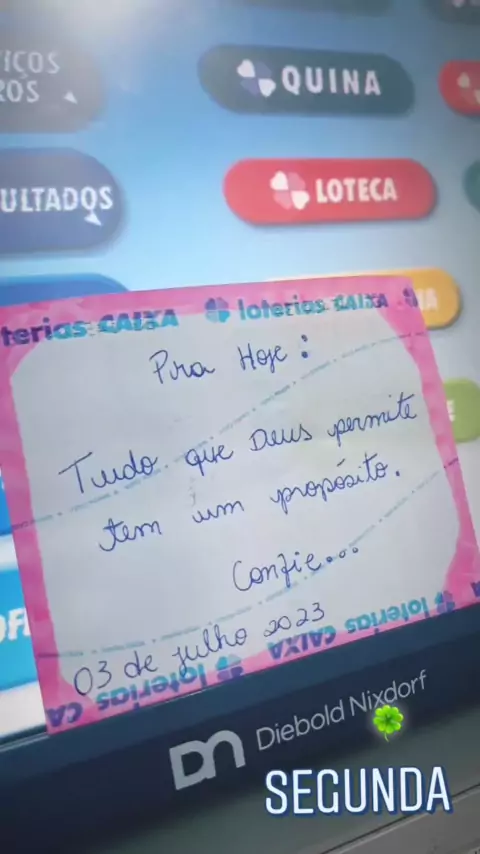 IÇOS
ROS
QUINA
ULTADOS
LOTECA
terias CAIXA loterias CAIXA
IA
Pra Hoje:
Tudo que Deus permite
tem um propósito.
Confie...
03 de julho 2023
CA loterias CAIXA loterias
Diebold Nixdorf
SEGUNDA